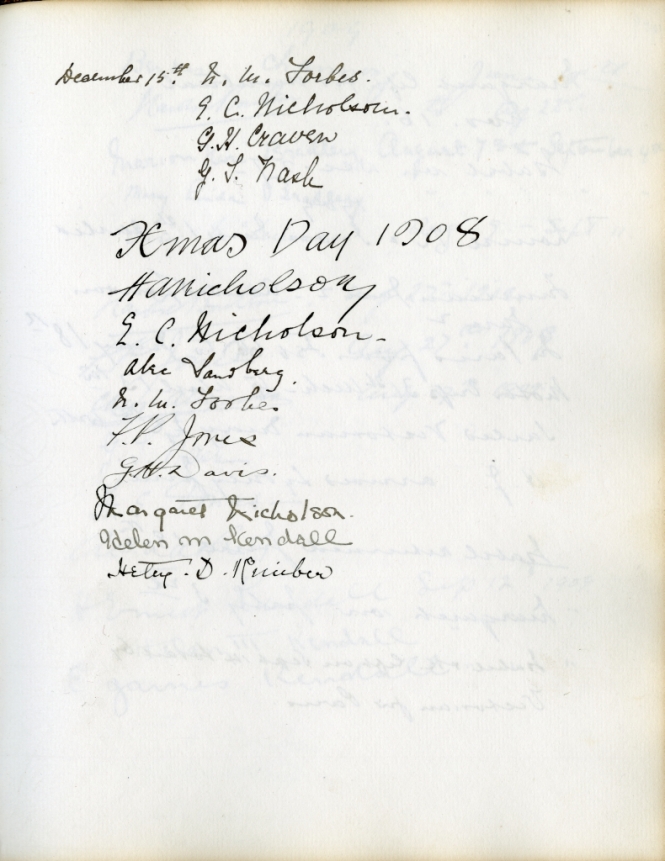 December 15th N. M. Forbes.
E. C. Nicholson.
G. H. Craven
G. S. Nash
Xmas Day 1908
HANicholson
E. C. Nicholson-
N. M. Forbes
F. P. Jones
G. H. Davis.
Margaret Nicholson.
Helen M Kendall
D.